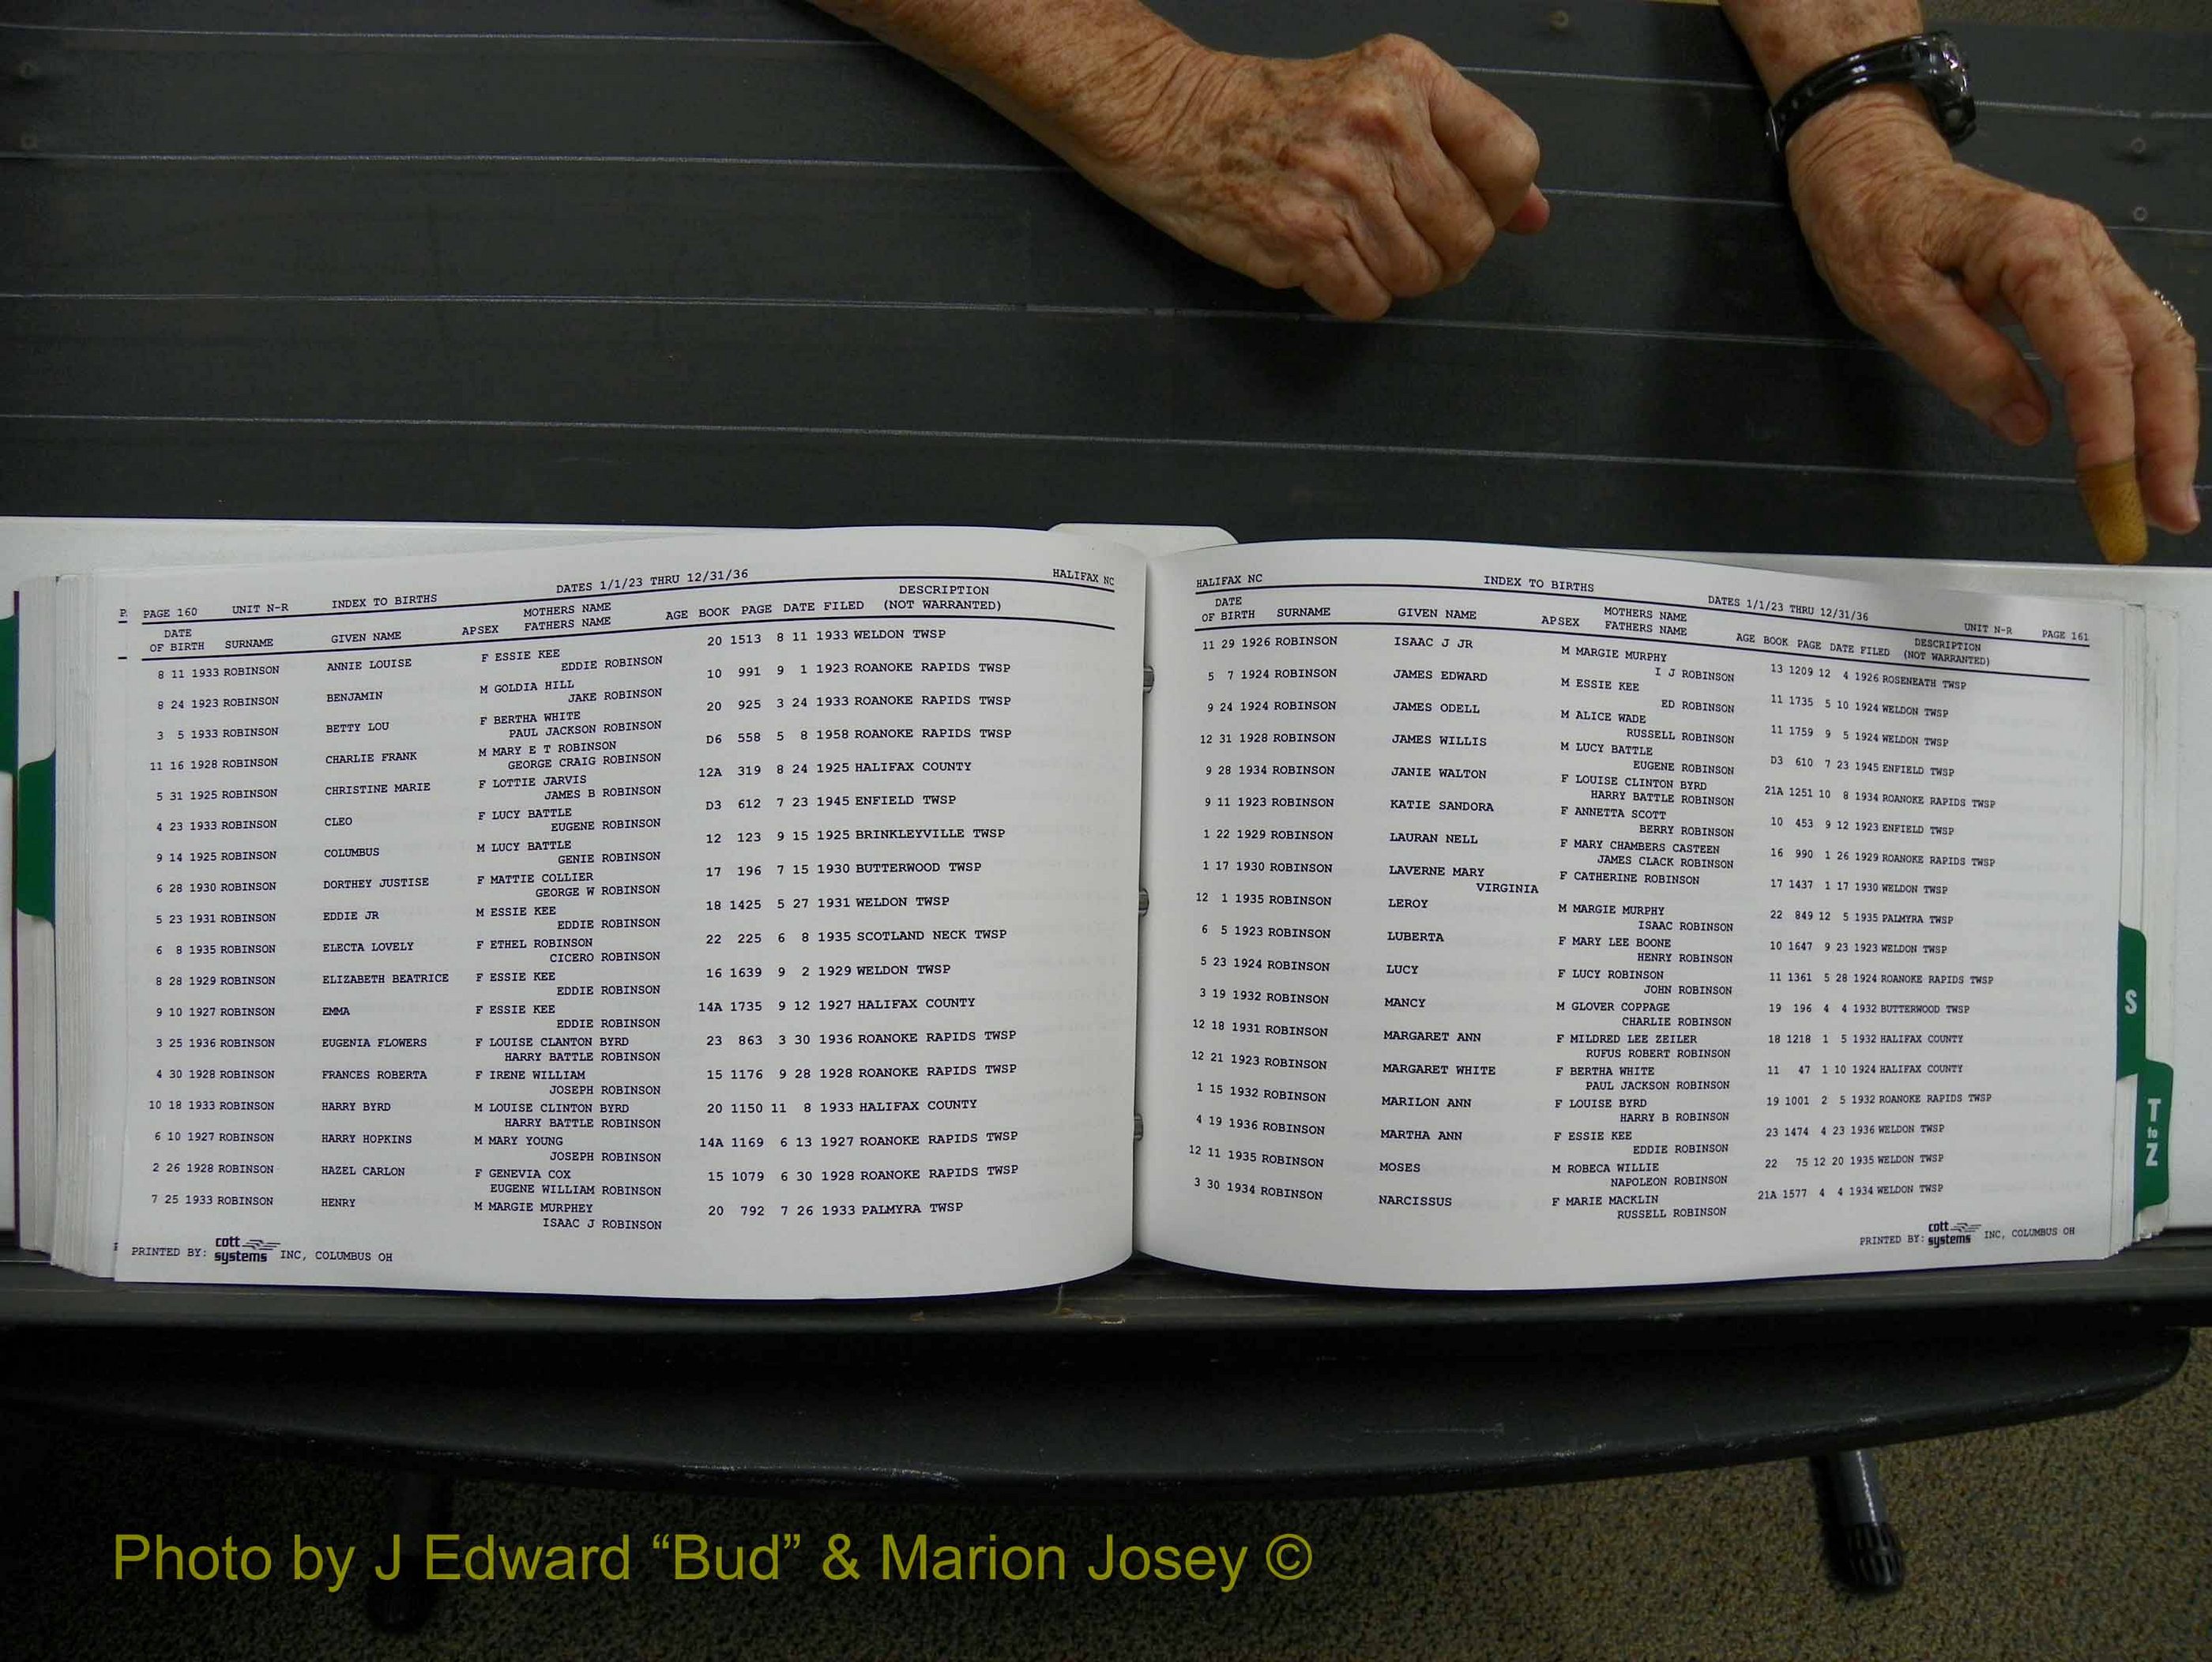 P. PAGE 160 UNIT N-R INDEX TO BIRTHS DATES 1/1/23 THRU 12/31/36 HALIFAX NC
DATE OF BIRTH SURNAME GIVEN NAME APSEX MOTHERS NAME FATHERS NAME AGE BOOK PAGE DATE FILED DESCRIPTION (NOT WARRANTED)
8 11 1933 ROBINSON ANNIE LOUISE F ESSIE KEE 20 1513 8 11 1933 WELDON TWSP
EDDIE ROBINSON
8 24 1923 ROBINSON BENJAMIN M GOLDIA HILL 10 991 9 1 1923 ROANOKE RAPIDS TWSP
JAKE ROBINSON
3 5 1933 ROBINSON BETTY LOU F BERTHA WHITE 20 925 3 24 1933 ROANOKE RAPIDS TWSP
PAUL JACKSON ROBINSON
11 16 1928 ROBINSON CHARLIE FRANK M MARY E T ROBINSON D6 558 5 8 1958 ROANOKE RAPIDS TWSP
GEORGE CRAIG ROBINSON
5 31 1925 ROBINSON CHRISTINE MARIE F LOTTIE JARVIS 12A 319 8 24 1925 HALIFAX COUNTY
JAMES B ROBINSON
4 23 1933 ROBINSON CLEO F LUCY BATTLE D3 612 7 23 1945 ENFIELD TWSP
EUGENE ROBINSON
9 14 1925 ROBINSON COLUMBUS M LUCY BATTLE 12 123 9 15 1925 BRINKLEYVILLE TWSP
GENIE ROBINSON
6 28 1930 ROBINSON DORTHEY JUSTISE F MATTIE COLLIER 17 196 7 15 1930 BUTTERWOOD TWSP
GEORGE W ROBINSON
5 23 1931 ROBINSON EDDIE JR M ESSIE KEE 18 1425 5 27 1931 WELDON TWSP
EDDIE ROBINSON
6 8 1935 ROBINSON ELECTA LOVELY F ETHEL ROBINSON 22 225 6 8 1935 SCOTLAND NECK TWSP
CICERO ROBINSON
8 28 1929 ROBINSON ELIZABETH BEATRICE F ESSIE KEE 16 1639 9 2 1929 WELDON TWSP
EDDIE ROBINSON
9 10 1927 ROBINSON EMMA F ESSIE KEE 14A 1735 9 12 1927 HALIFAX COUNTY
EDDIE ROBINSON
3 25 1936 ROBINSON EUGENIA FLOWERS F LOUISE CLANTON BYRD 23 863 3 30 1936 ROANOKE RAPIDS TWSP
HARRY BATTLE ROBINSON
4 30 1928 ROBINSON FRANCES ROBERTA F IRENE WILLIAM 15 1176 9 28 1928 ROANOKE RAPIDS TWSP
JOSEPH ROBINSON
10 18 1933 ROBINSON HARRY BYRD M LOUISE CLINTON BYRD 20 1150 11 8 1933 HALIFAX COUNTY
HARRY BATTLE ROBINSON
6 10 1927 ROBINSON HARRY HOPKINS M MARY YOUNG 14A 1169 6 13 1927 ROANOKE RAPIDS TWSP
JOSEPH ROBINSON
2 26 1928 ROBINSON HAZEL CARLON F GENEVIA COX 15 1079 6 30 1928 ROANOKE RAPIDS TWSP
EUGENE WILLIAM ROBINSON
7 25 1933 ROBINSON HENRY M MARGIE MURPHEY 20 792 7 26 1933 PALMYRA TWSP
ISAAC J ROBINSON
PRINTED BY: cott systems INC, COLUMBUS OH
HALIFAX NC INDEX TO BIRTHS DATES 1/1/23 THRU 12/31/36 UNIT N-R PAGE 161
DATE OF BIRTH SURNAME GIVEN NAME APSEX MOTHERS NAME FATHERS NAME AGE BOOK PAGE DATE FILED DESCRIPTION (NOT WARRANTED)
11 29 1926 ROBINSON ISAAC J JR M MARGIE MURPHY 13 1209 12 4 1926 ROSENEATH TWSP
I J ROBINSON
5 7 1924 ROBINSON JAMES EDWARD M ESSIE KEE 11 1735 5 10 1924 WELDON TWSP
ED ROBINSON
9 24 1924 ROBINSON JAMES ODELL M ALICE WADE 11 1759 9 5 1924 WELDON TWSP
RUSSELL ROBINSON
12 31 1928 ROBINSON JAMES WILLIS M LUCY BATTLE D3 610 7 23 1945 ENFIELD TWSP
EUGENE ROBINSON
9 28 1934 ROBINSON JANIE WALTON F LOUISE CLINTON BYRD 21A 1251 10 8 1934 ROANOKE RAPIDS TWSP
HARRY BATTLE ROBINSON
9 11 1923 ROBINSON KATIE SANDORA F ANNETTA SCOTT 10 453 9 12 1923 ENFIELD TWSP
BERRY ROBINSON
1 22 1929 ROBINSON LAURAN NELL F MARY CHAMBERS CASTEEN 16 990 1 26 1929 ROANOKE RAPIDS TWSP
JAMES CLACK ROBINSON
1 17 1930 ROBINSON LAVERNE MARY F CATHERINE ROBINSON 17 1437 1 17 1930 WELDON TWSP
VIRGINIA
12 1 1935 ROBINSON LEROY M MARGIE MURPHY 22 849 12 5 1935 PALMYRA TWSP
ISAAC ROBINSON
6 5 1923 ROBINSON LUBERTA F MARY LEE BOONE 10 1647 9 23 1923 WELDON TWSP
HENRY ROBINSON
5 23 1924 ROBINSON LUCY F LUCY ROBINSON 11 1361 5 28 1924 ROANOKE RAPIDS TWSP
JOHN ROBINSON
3 19 1932 ROBINSON MANCY M GLOVER COPPAGE 19 196 4 4 1932 BUTTERWOOD TWSP
CHARLIE ROBINSON
12 18 1931 ROBINSON MARGARET ANN F MILDRED LEE ZEILER 18 1218 1 5 1932 HALIFAX COUNTY
RUFUS ROBERT ROBINSON
12 21 1923 ROBINSON MARGARET WHITE F BERTHA WHITE 11 47 1 10 1924 HALIFAX COUNTY
PAUL JACKSON ROBINSON
1 15 1932 ROBINSON MARILON ANN F LOUISE BYRD 19 1001 2 5 1932 ROANOKE RAPIDS TWSP
HARRY B ROBINSON
4 19 1936 ROBINSON MARTHA ANN F ESSIE KEE 23 1474 4 23 1936 WELDON TWSP
EDDIE ROBINSON
12 11 1935 ROBINSON MOSES M ROBECA WILLIE 22 75 12 20 1935 WELDON TWSP
NAPOLEON ROBINSON
3 30 1934 ROBINSON NARCISSUS F MARIE MACKLIN 21A 1577 4 4 1934 WELDON TWSP
RUSSELL ROBINSON
PRINTED BY: cott systems INC, COLUMBUS OH
S
T to Z
Photo by J Edward “Bud” & Marion Josey ©